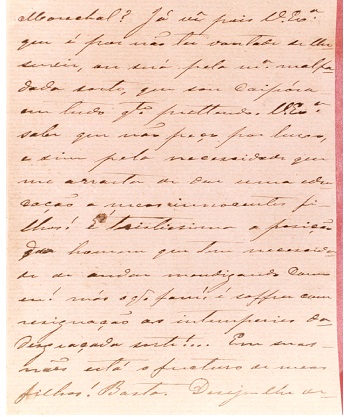 Marechal? Já vê pois V. Exª.
que é por não ter vontade de me
servir, ou será pela mª. malfa-
dada sorte, que sou caipóra
em tudo qto. prettendo. V. Exª.
sabe que não peço por luxo,
e sim pela necessidade que
me arrasta de dar uma edu
cação a meos innocentes fi-
lhos! É tristissima a posição
homem que tem necessida-
de de andar mendigando como
eu! mas o q farei! é soffrer com
resignação as intemperies da
desgraçada sorte!... Em suas
mãos está o fucturo de meos
filhos! Basta. Desejo-lhe